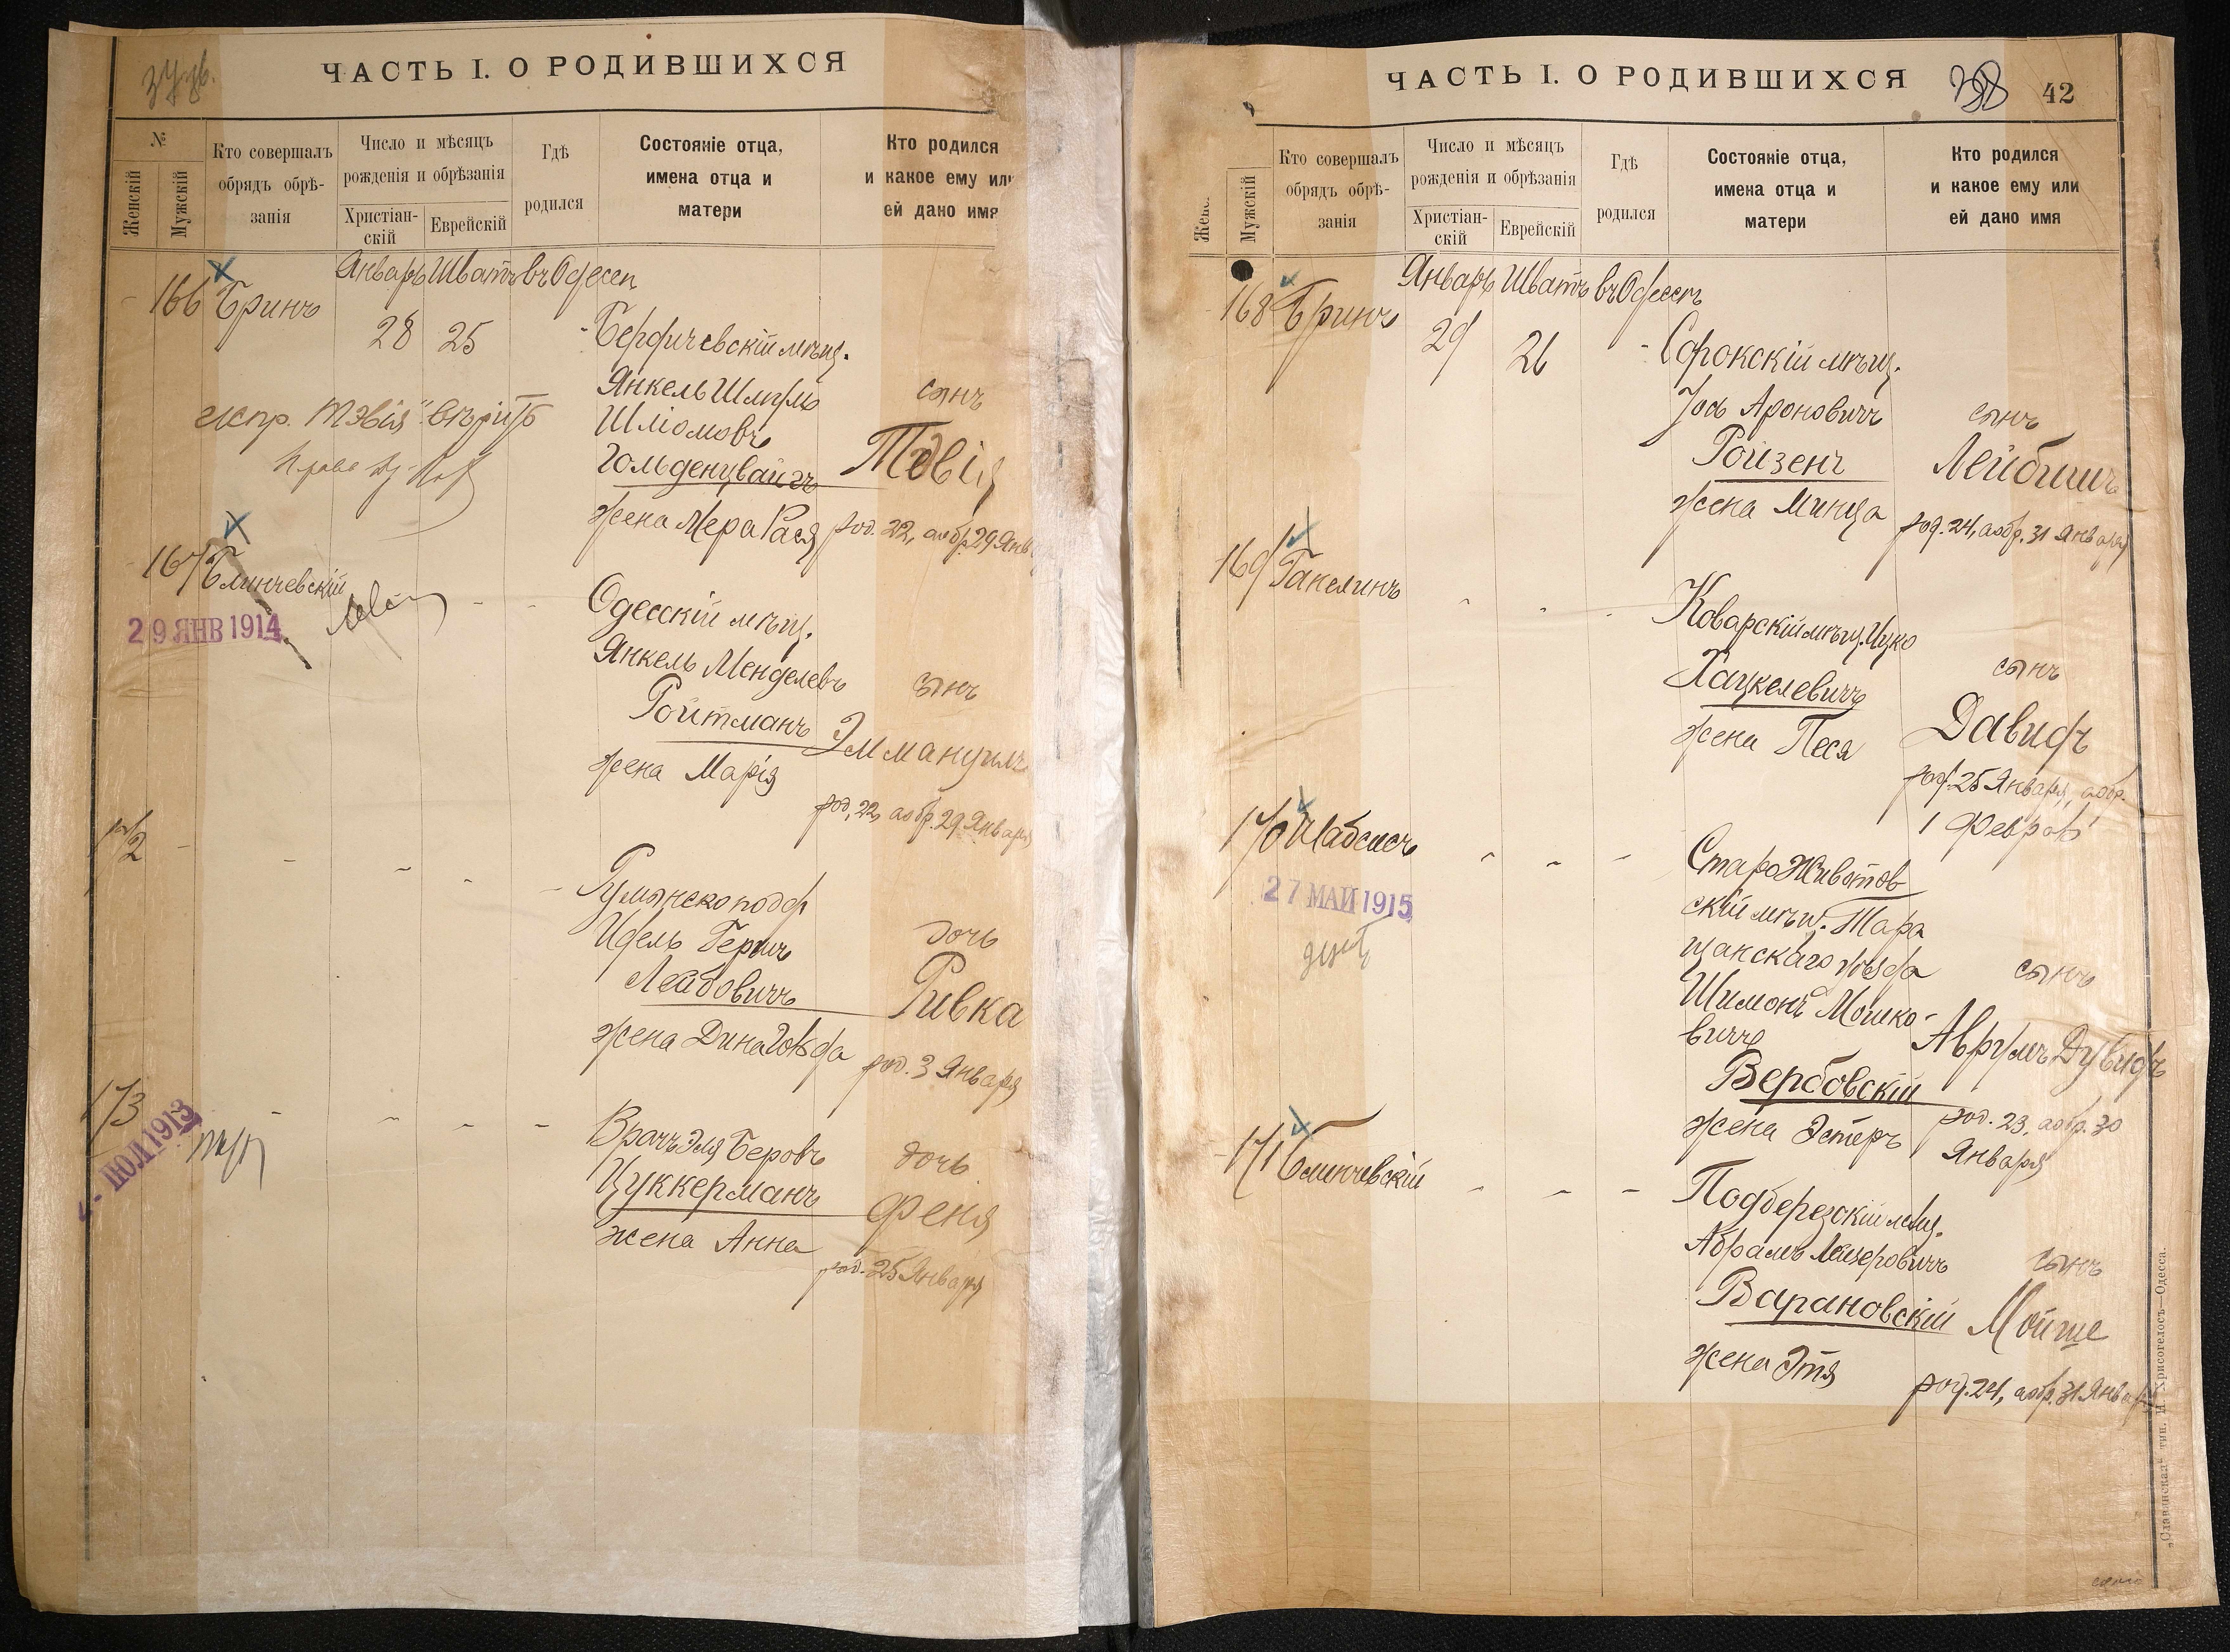 ЧАСТЬ I. О РОДИВШИХСЯ
№
Женскій
Мужскій
Кто совершалъ
обрядъ обрѣ-
занія
Число и мѣсяцъ
рожденія и обрѣзанія
Христіан-
скій
Еврейскій
Гдѣ
родился
Состояніе отца,
имена отца и
матери
Кто родился
и какое ему или
ей дано имя
Январь Шватъ въ Одессѣ
166 Бринъ
28 25
Бердичевскій мѣщ.
Янкель Шмуль
сынъ
испр. "Тэвія" вѣрито
Шліомовъ
Гольденцвайгъ
Тэвія
жена Мера Рася
род. 22, а обр. 29 Янв
167 Блинчевскій
29 ЯНВ 1914
Одесскій мѣщ.
Янкель Менделевъ
сынъ
Ройтманъ
Эммануилъ
жена Марія
род. 22, а обр. 29 Января
172
Румынско подд
Идель Герш
дочь
Лейбовичъ
Ривка
жена Дина
род. 3 Января
173
ІЮЛ 1913
Врачъ Эля Беровъ
дочь
Цуккерманъ
Феня
жена Анна
род. 25 Января
ЧАСТЬ I. О РОДИВШИХСЯ
42
Мужскій
Кто совершалъ
обрядъ обрѣ-
занія
Число и мѣсяцъ
рожденія и обрѣзанія
Христіан-
скій
Еврейскій
Гдѣ
родился
Состояніе отца,
имена отца и
матери
Кто родился
и какое ему или
ей дано имя
Январь Шватъ въ Одессѣ
168 Бринъ
29 26
Сорокскій мѣщ.
Іось Ароновичъ
сынъ
Ройзенъ
Лейбишъ
жена Минца
род. 24, а обр. 31 Января
169 Гакелинъ
Коварскій мѣщ. Ицко
сынъ
Хацкелевичъ
Давидъ
жена Песя
род. 25 Января, а обр.
1 Февр
170 Шабсисъ
27 МАЙ 1915
Старо Животов
скій мѣщ. Тара
щанскаго уѣзда
сынъ
Шимонъ Мошко-
вичъ
Аврумъ Дувидъ
Вербовскій
жена Эстеръ
род. 23, а обр. 30
Января
171 Блинчевскій
Подберезскій мѣщ.
Абрамъ Лейзеровичъ
сынъ
Барановскій
Мойше
жена Этя
род. 24, а обр. 31 Января
„Славянская" тип. Н. Хрисогелосъ—Одесса.